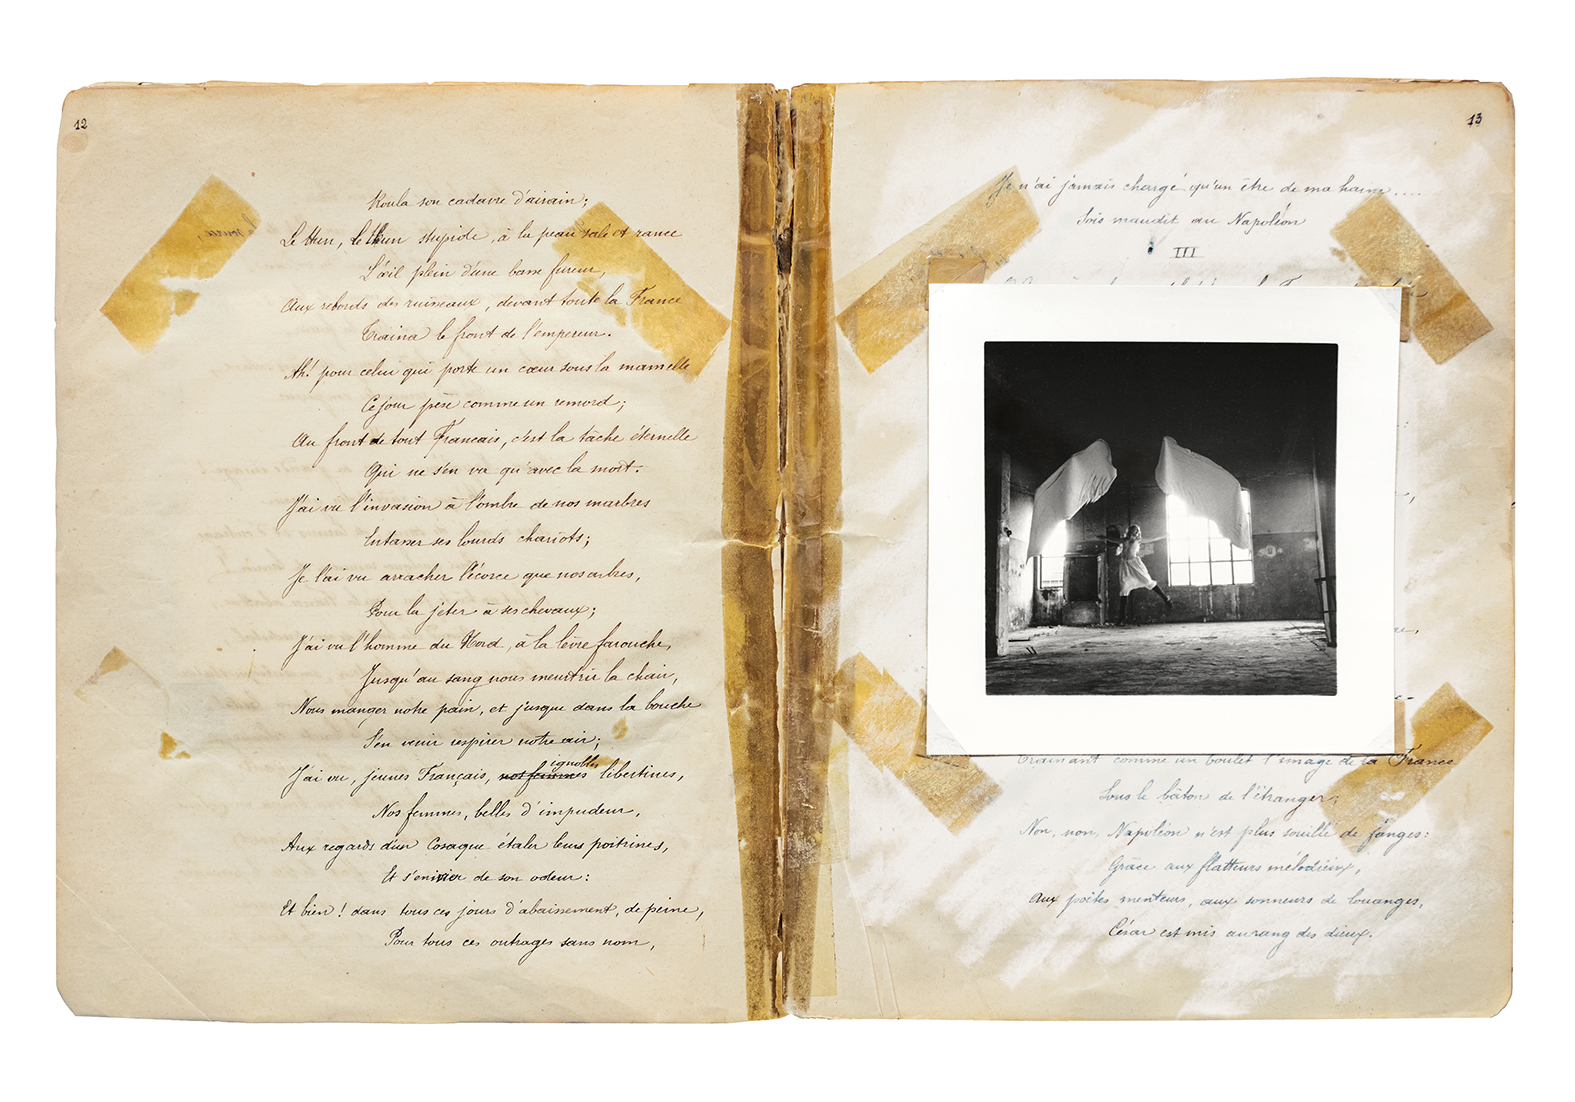 12
Roula son cadavre d'airain;
Le Hun, le Hun stupide, à la peau sale et rance
L'œil plein d'une basse fureur,
Aux rebords des ruisseaux, devant toute la France
Traina le front de l'empereur.
Ah! pour celui qui porte un cœur sous la mamelle
Ce jour pèse comme un remord;
Au front de tout Francais, c'est la tâche éternelle
Qui ne s'en va qu'avec la mort.
J'ai vu l'invasion à l'ombre de nos marbres
Entasser ses lourds chariots;
Je l'ai vu arracher l'écorce que nos arbres,
Pour la jeter à ses chevaux;
J'ai vu l'homme du Nord, à la lèvre farouche,
Jusqu'au sang nous meurtrir la chair,
Nous manger notre pain, et jusque dans la bouche
S'en venir respirer notre air;
ignobles
J'ai vu, jeunes Français, nos femmes libertines,
Nos femmes, belles d'impudeur,
Aux regards d'un Cosaque étaler leurs poitrines,
Et s'enivrer de son odeur:
Et bien! dans tous ces jours d'abaissement, de peine,
Pour tous ces outrages sans nom,
13
Je n'ai jamais chargé qu'un être de ma haine....
Sois maudit ou Napoléon
III
Trainant comme un boulet l'image de la France
Sous le bâton de l'étranger;
Non, non, Napoléon n'est plus souillé de fanges:
Grâce aux flatteurs mélodieux,
Aux poëtes menteurs, aux sonneurs de louanges,
César est mis au rang des dieux.